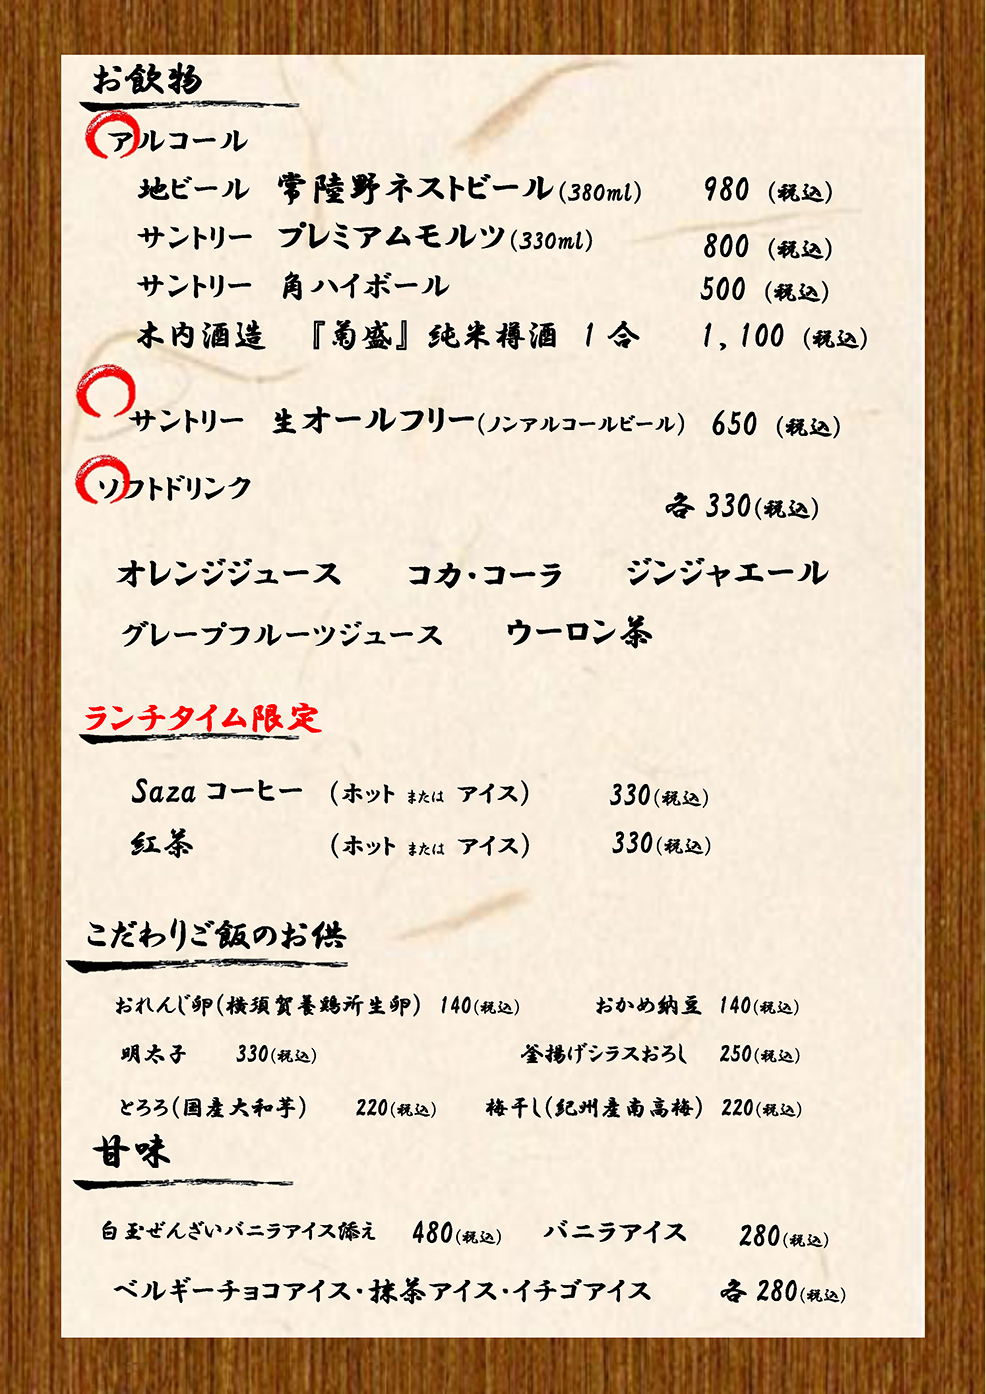 お飲物
アルコール
地ビール 常陸野ネストビール(380ml) 980 (税込)
サントリー プレミアムモルツ(330ml) 800 (税込)
サントリー 角ハイボール 500 (税込)
木内酒造 『菊盛』純米樽酒 1合 1,100 (税込)
サントリー 生オールフリー(ノンアルコールビール) 650 (税込)
ソフトドリンク 各330(税込)
オレンジジュース コカ・コーラ ジンジャエール
グレープフルーツジュース ウーロン茶
ランチタイム限定
Saza コーヒー (ホット または アイス) 330(税込)
紅茶 (ホット または アイス) 330(税込)
こだわりご飯のお供
おれんじ卵(横須賀養鶏所生卵) 140(税込) おかめ納豆 140(税込)
明太子 330(税込) 釜揚げシラスおろし 250(税込)
とろろ(国産大和芋) 220(税込) 梅干し(紀州産南高梅) 220(税込)
甘味
白玉ぜんざいバニラアイス添え 480(税込) バニラアイス 280(税込)
ベルギーチョコアイス・抹茶アイス・イチゴアイス 各280(税込)